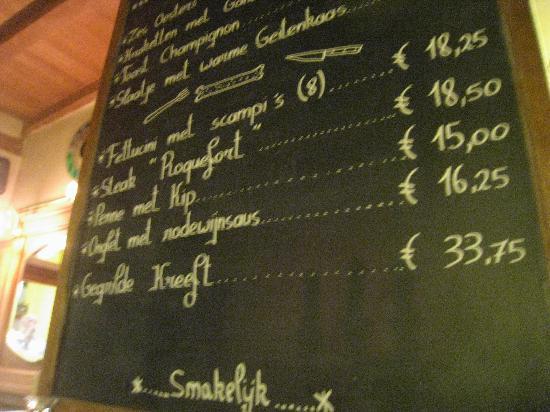 * Zes Oesters
* Kroketten met
* Toast Champignon
* Slaatje met warme Geitenkaas
* Fettucini met scampi's (8) € 18,25
* Steak "Roquefort" € 18,50
* Penne met Kip € 15,00
* Onglet met rodewijnsaus € 16,25
* Gegrilde Kreeft € 33,75
Smakelijk